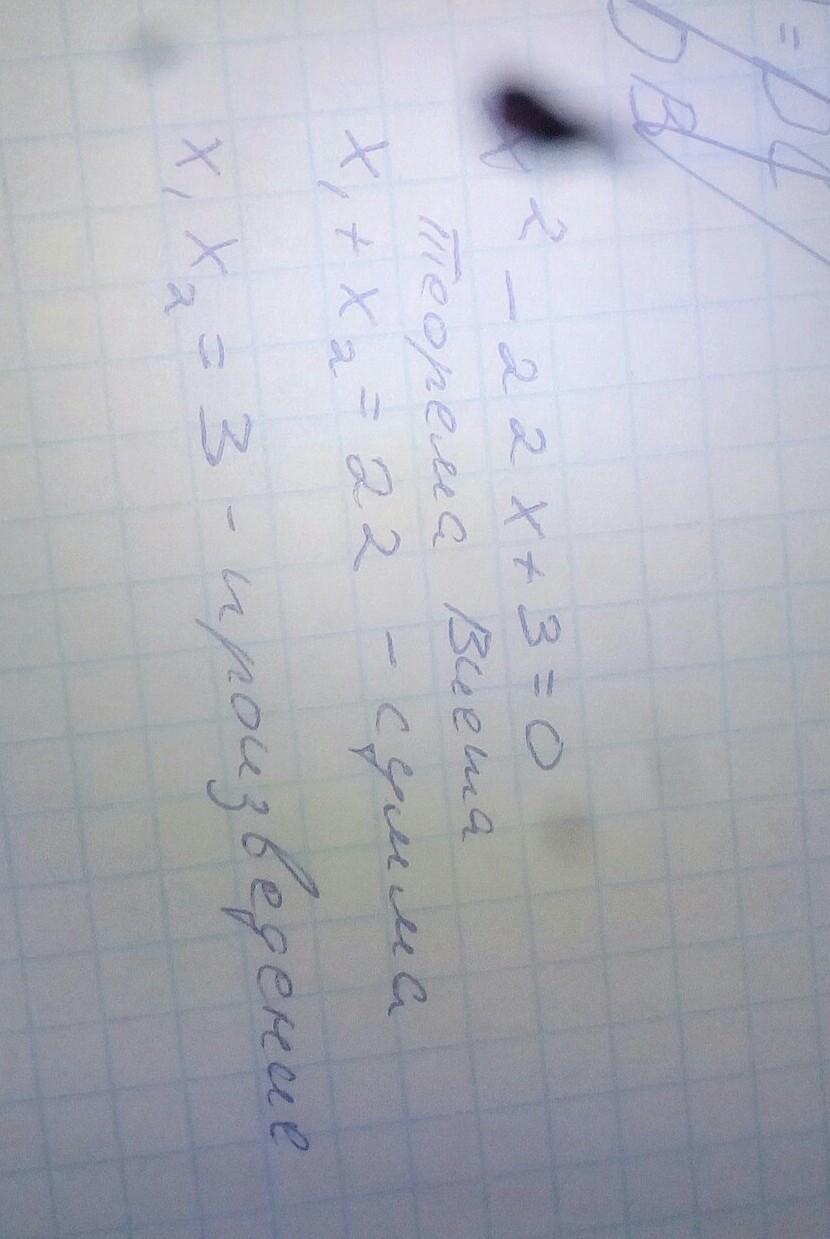 x² - 22x + 3 = 0
теорема Виета
x₁ + x₂ = 22 - сумма
x₁ x₂ = 3 - произведение